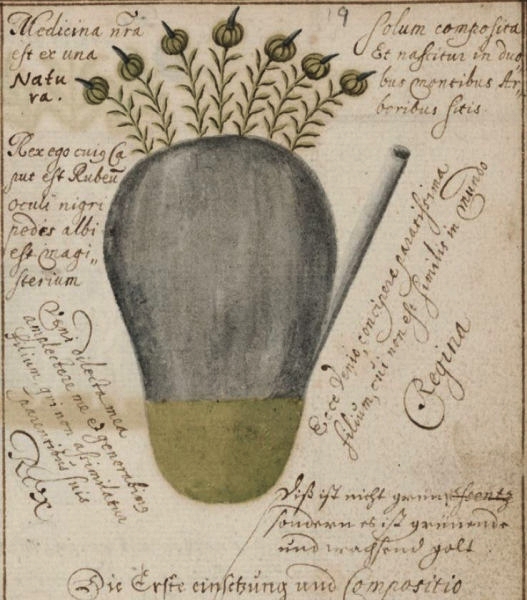 19
Medicina nrã
est ex una
Natu
ra.
Solum composita
Et nascitur in duo
bus montibus Ar,,
boribus sitis.
Rex ego cuiq Ca
put est Rubeũ
oculi nigri
pedes albi
est magi,,
sterium
Veni dilecta mea
amplectere me et generabimq
filium, qui non assimilatur
parentibus suis
Rex
Ecce Venio, concipere paratissima
filium, cui non est similis in Mundo
Regina
Diß ist nicht grün
sondern es ist grünende
und wachsend golt
Die Erste einsetzung und Compositio